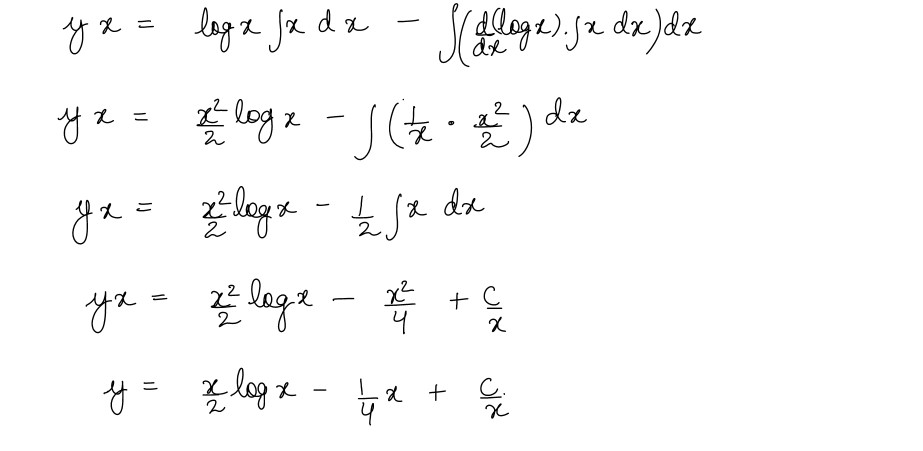 yx = log x ∫x dx − ∫(d/dx(log x).∫x dx)dx
yx = x²/2 log x − ∫(1/x · x²/2) dx
yx = x²/2 log x − 1/2 ∫x dx
yx = x²/2 log x − x²/4 + C/x
y = x/2 log x − 1/4 x + C/x